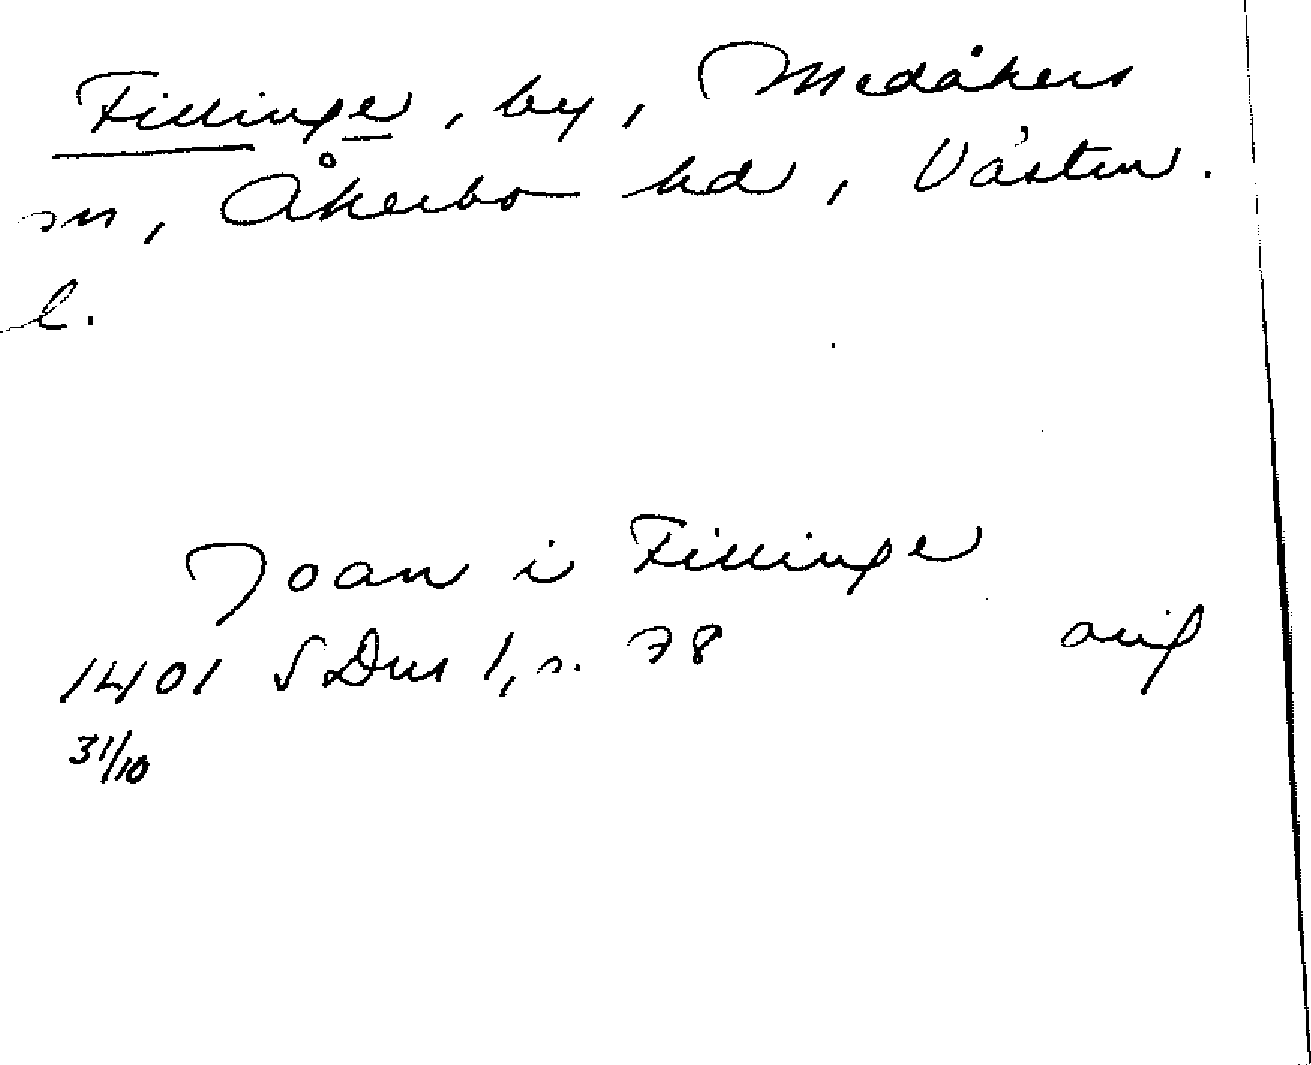 Fillinge, by, Medåkers
sn, Åkerbo hd, Västm.
l.
Joan i Fillinge
1401 SDns 1, s. 78 orig
31/10